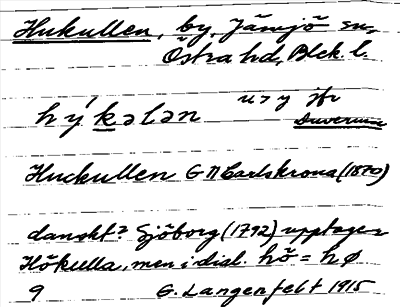 Hukullen, by, Jämjö sn,
Östra hd, Blek. l.
hý kələn u > y jfr
Huckullen GK Carlskrona (1870)
danskt? Sjöborg (1792) upptager
Hökulla, men i dial. hö = hø
9 G. Langenfelt 1915